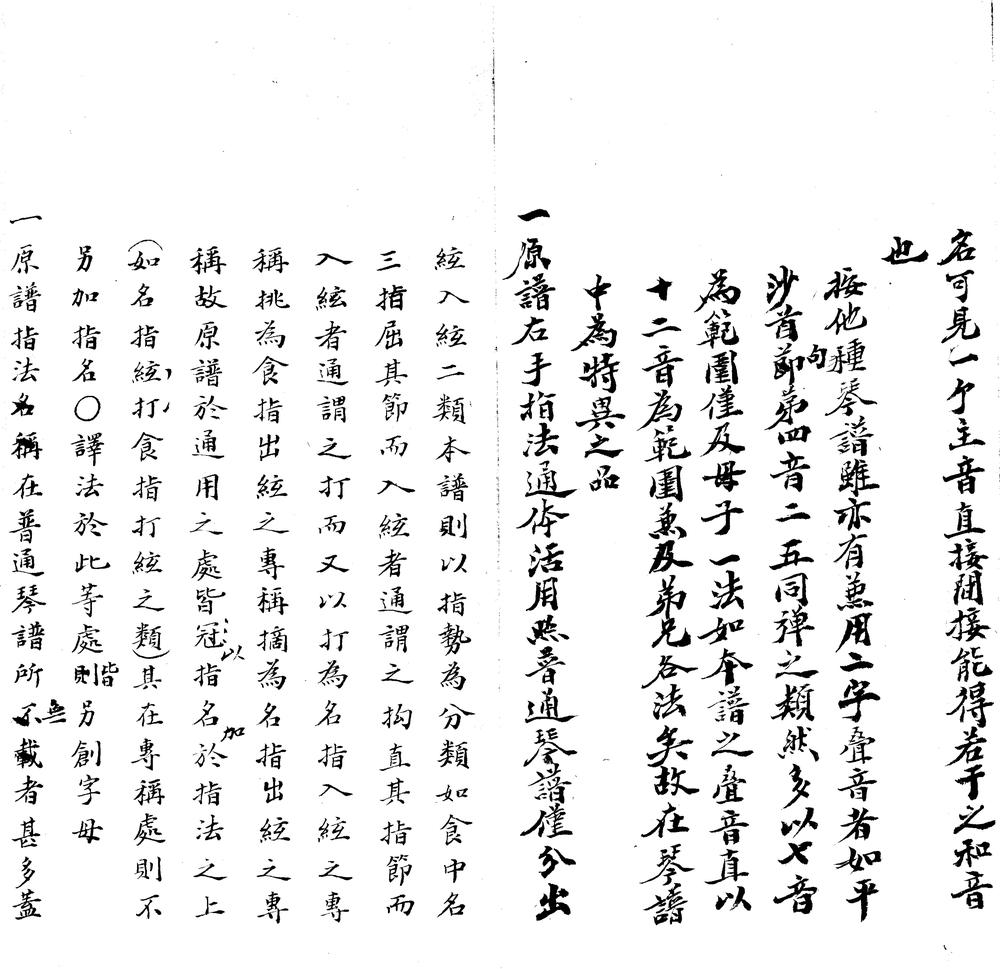 名可見一个主音直接間接能得若干之和音
也
按他種琴譜雖亦有兼用二字疊音者如平
沙首節句第四音二五同彈之類然多以七音
為範圍僅及母子一法如本譜之疊音直以
十二音為範圍兼及弟兄各法矣故在琴譜
中為特異之品
一原譜右手指法通体活用與普通琴譜僅分出
絃入絃二類本譜則以指勢為分類如食中名
三指屈其節而入絃者通謂之抅直其指節而
入絃者通謂之打而又以打為名指入絃之專
稱挑為食指出絃之專稱摘為名指出絃之專
稱故原譜於通用之處皆冠以指名加於指法之上
(如名指絃打食指打絃之類)其在專稱處則不
另加指名〇譯法於此等處則皆另創字母
一原譜指法名稱在普通琴譜所無載者甚多蓋